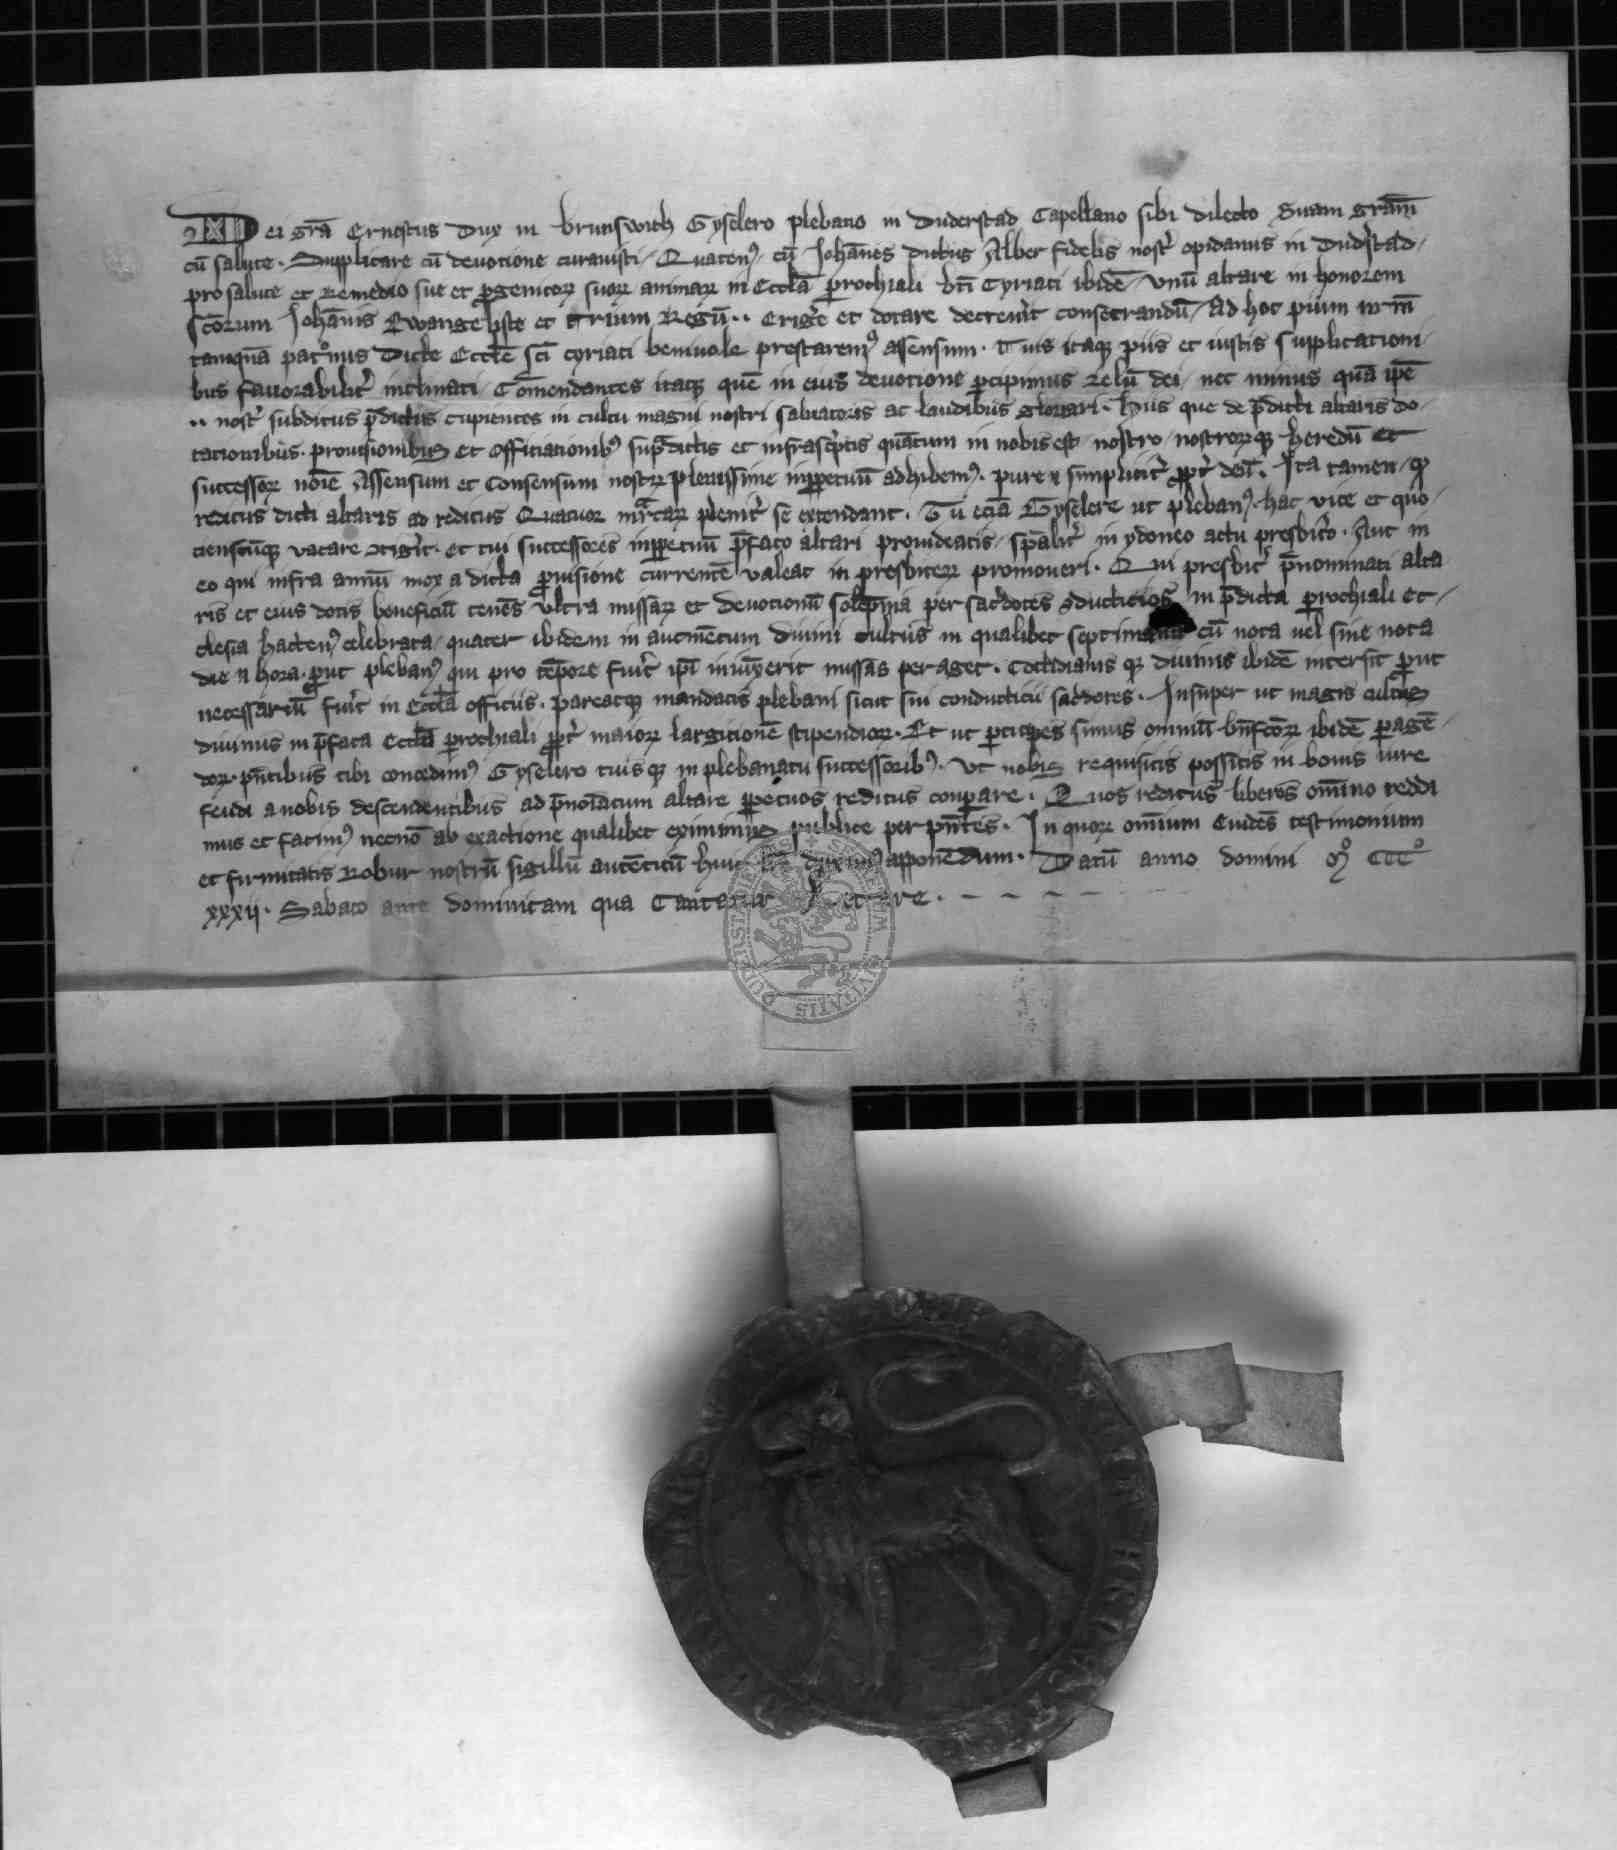 Dei grā Ernestus Dux in brunswich Gyselero plebano in Duderstad Capellano sibi dilecto Suam grām̄
cū salute. Supplicare cū devotione curavisti, Quaten⁹, cū Johānes dictus Alber fidelis nost͛ opidanus in Dud͛stad,
pro salute et Remedio sue et ꝓgenitoꝝ suoꝝ animaꝝ in Eccl̄a p̱rochiali bt̄i Cyriaci ibidē, vnū altare in honorem
sc̄orum Johānis Ewangeliste et trium Regū.. erig͛e et dotare decrev͛it consecrandū, Ad hoc pium
tamquā pat͛onus Dicte Eccl̄e sc̄i cyriaci benivole prestarem⁹ assensum. Tuis itaqꝫ piis et iustis supplicationi
bus favorabilit͛ inclinati, Com̄endantes itaqꝫ quē in eius devotione p̱cipimus zelū dei, nec minus quā ip̄e
.. nost͛ subditus p̄dictus cupientes in cultu magni nostri salvatoris ac laudibus gloriari. Hiis que de p̄dicti altaris do,
tationibus. provisionibus et officiationib⁹ sup̄dictis et infrasc͛ptis quātum in nobis est, nostro, nostroꝝqꝫ heredū et
successoꝝ noīe Assensum et Consensum nostꝝ plenissime inp̱petuū adhibem⁹. pure ⁊ simplicit͛ ꝓpt͛ deū. Ita tamen, qꝫ
reditus dicti altaris ad reditus Quatuor mr̄caꝝ plenit͛ se extendant. Tu eciā Gyselere ut pleban⁹. hac vice et quo,
cienscūqꝫ vacare ↄtig͛it. et tui successores inp̱petuū p̄fato altari provideatis, sp̄alit͛ in ydoneo actu presbit͛o. Aut in
eo qui infra annū mox a dicta ꝓvisione currentē valeat in presbiteꝝ promoveri. Qui presbit͛ p̄nominati alta
ris et eius dotis beneficiū tenēs vltra missaꝝ et devotionū solēpnia per sac͛dotes ↄducticios in p̄dicta p̱rochiali Ec,
clesia hacten⁹ celebrata, quater ibidem in aucmētum divini cultus in qualibet septimana cū nota vel sine nota
die ⁊ hora. ꝓut pleban⁹ qui pro tēpore fu͛it ip̄i iniūxerit missas peraget. Cotidianis qꝫ divinis ibidē intersit ꝓut
necessariū fu͛it in Eccl̄a officiis. pareatqꝫ mandatis plebani sicut sui conducticii sac͛dotes. Insuper ut magis cultus
divinus in p̄fata Eccl̄a p̱rochiali ꝓpt͛ maioꝝ largitionē stipendioꝝ. Et ut p̱ticipes simus omniū bn̄fc̄oꝝ ibidē p̱agē,
doꝝ. pn̄tibus tibi concedim⁹ Gyselero tuis qꝫ in plebanatu successorib⁹. Vt nobis requisitis possitis in bonis iure
feudi a nobis descendentibus ad p̄noīatum altare p̱petuos reditus conp̱are. Quos reditus liberos om̄ino reddi
mus et facim⁹ necnō ab exactione qualibet eximimus publice per pn̄tes. In quoꝝ omnium Evidēs testimonium
et firmitatis Robur nostrū sigillū autēticū huic duxim⁹ apponēdum. Datū anno domini Mͦ CCCͦ
xxxij. Sabato ante dominicam qua Cantatur Letare.